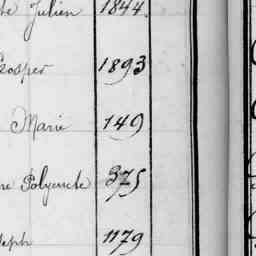 Julien 1844.
1893
Marie 149
re Polyeucte 375
seph 1179